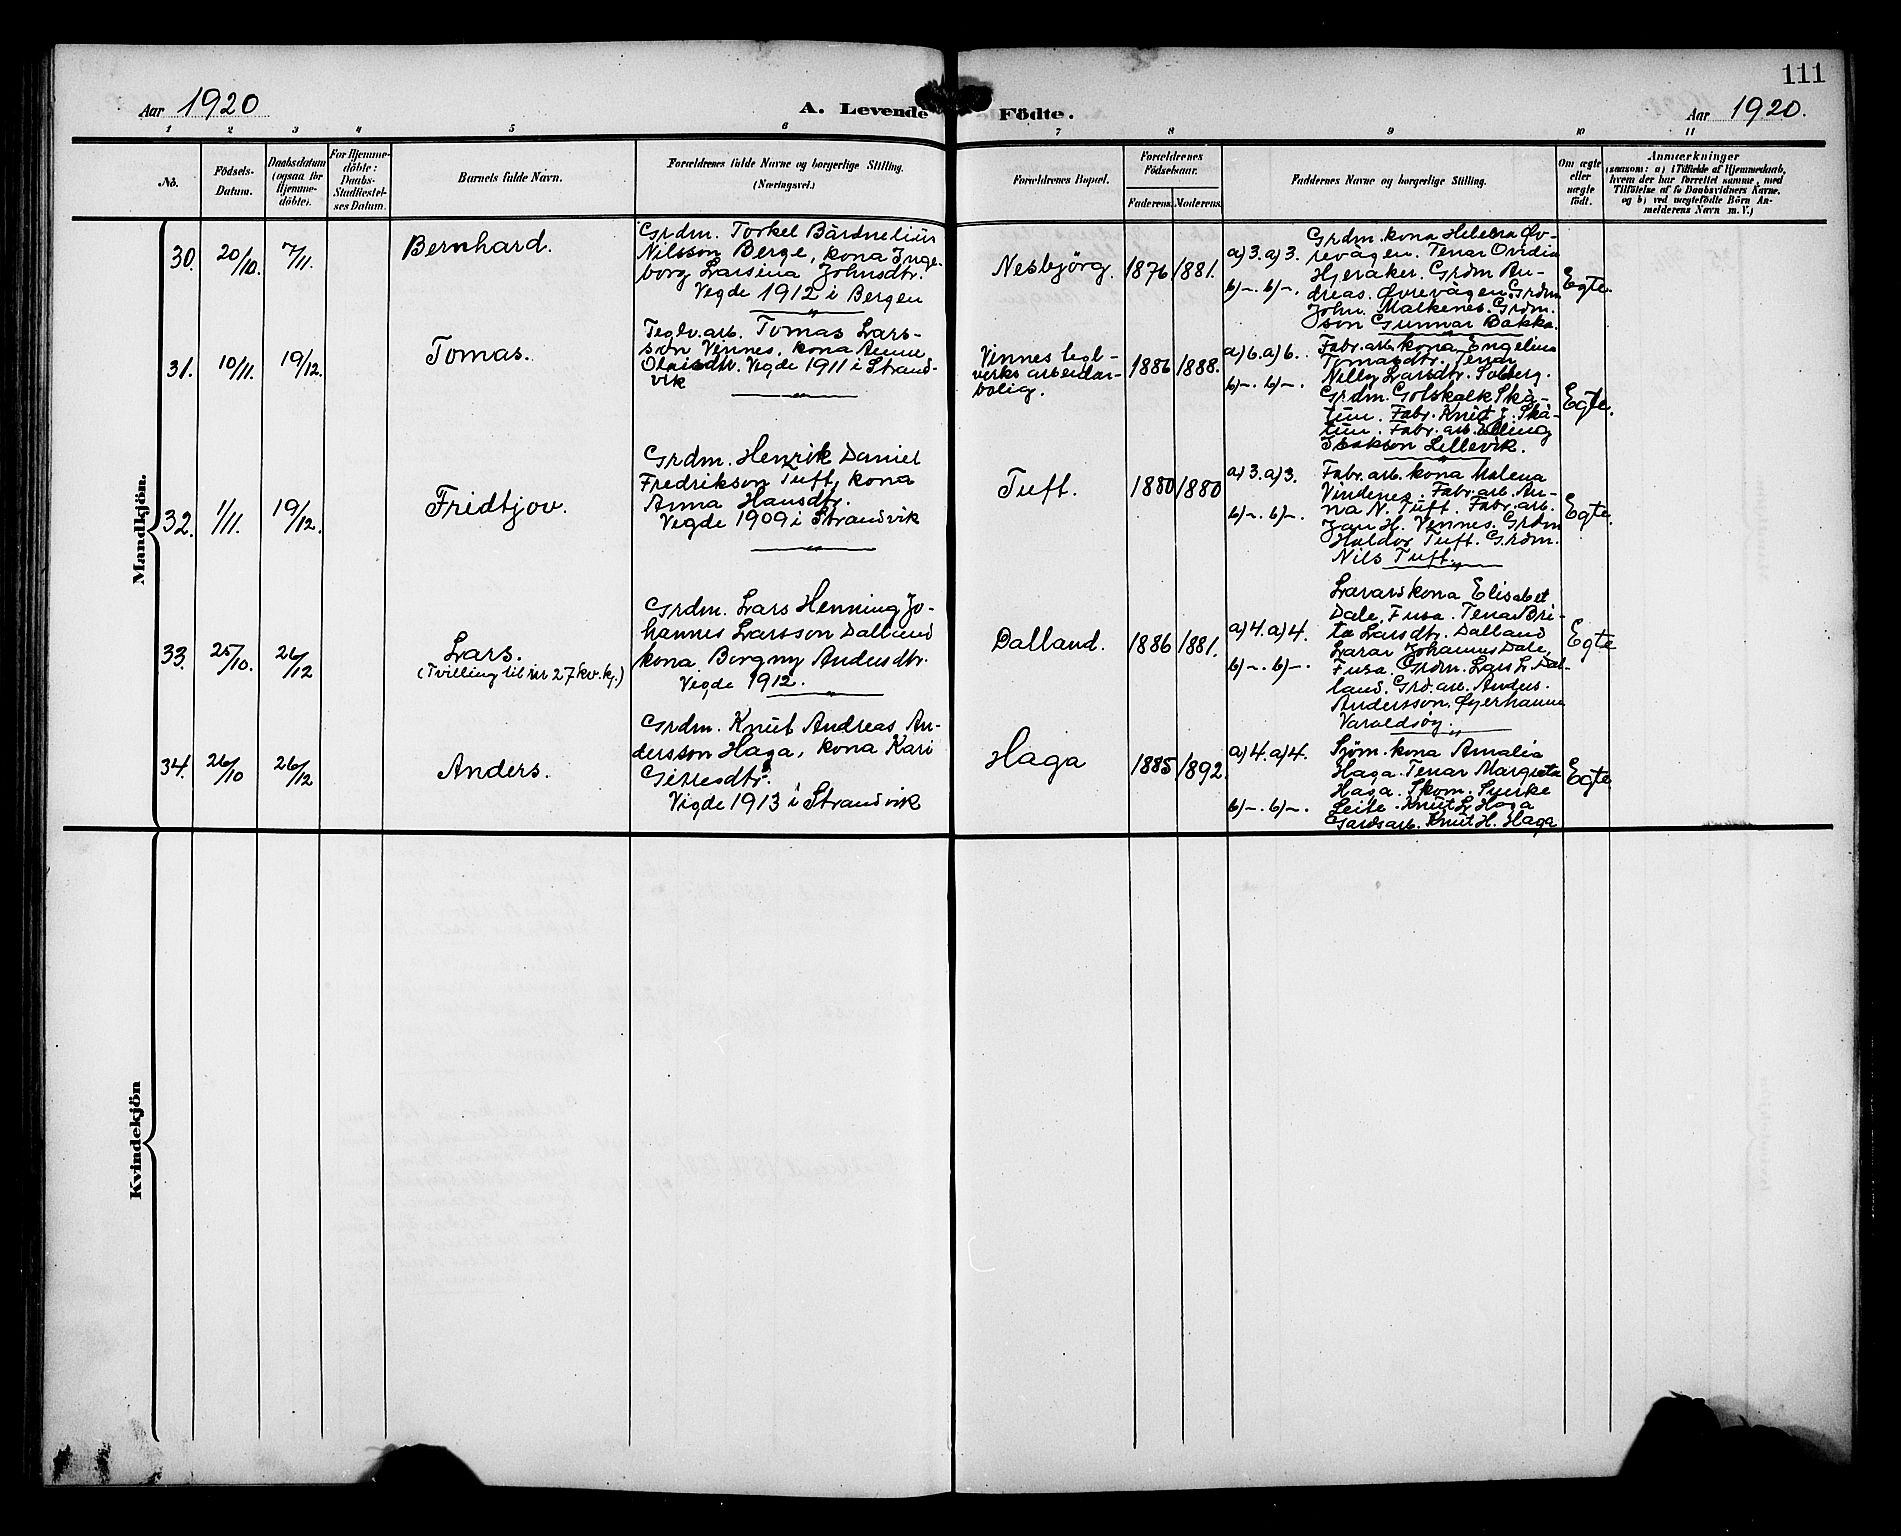 111
Aar 1920
A. Levende Födte.
Aar 1920.
1 2 3 4 5 6 7 8 9 10 11
No.
Födsels-
Datum.
Daabsdatum
(ogsaa for
Hjemme-
döbte).
For Hjemme-
döbte:
Daabs-
Stadfæstel-
ses Datum.
Barnets fulde Navn.
Forældrenes fulde Navne og borgerlige Stilling.
(Næringsvei.)
Forældrenes Bopæl.
Forældrenes
Födselsaar.
Faderens. Moderens.
Faddernes Navne og borgerlige Stilling.
Om ægte
eller
uægte
født.
Anmærkninger
(saasom: a) i Tilfælde af Hjemmedaab,
hvem der har forrettet samme, med
Tilföielse af to Daabsvidners Navne,
og b) ved uægtefödte Börn An-
melderens Navn m. V.)
Mandkjön.
30. 20/10. 7/11. Bernhard.
Grdm. Torkel Bårdnelius
Nilsson Berge, kona Inge-
borg Larsina Johnsdtr.
Vegde 1912 i Bergen
Nesbjörg. 1876 1881.
a) 3. a) 3.
b) –. b) –.
Grdm. kona Helena Øv-
revågen. Tenar Ovidia
Hjeraker. Grdm An-
dreas. Øvrevågen. Grdm
John. Malkenes. Grdm.
son Gunnar Bakka.
Egte.
31. 10/11. 19/12. Tomas.
Teglv.arb. Tomas Lars-
son Vinnes, kona Anne
Olaisdtr. Vegde 1911 i Strand-
vik
Vinnes tegl-
verks arbeidar-
bolig.
1886 1888.
a) 6. a) 6.
b) –. b) –.
Fabr.arb. kona Engelina
Tomasdtr. Tenar
Nilly Larsdtr. Solberg.
Grdm. Gotskalk Skå-
tun. Fabr. Knut J. Skå-
tun. Fabr. arb. Elling
Isakson Lillevik.
Egte.
32. 1/11. 19/12. Fridtjov.
Grdm. Henrik Daniel
Fredrikson Tuft, kona
Anna Hansdtr.
Vegde 1909 i Strandvik
Tuft. 1880 1880
a) 3. a) 3.
b) –. b) –.
Fabr. arb. kona Malena
Vindenes. Fabr. arb. An-
na N. Tuft. Fabr. arb.
Jan H. Vinnes. Grdm
Haldor Tuft. Grdm.
Nils Tuft.
Egte.
33. 25/10. 26/12 Lars.
(Tvilling til nr 27 kv. kj.)
Grdm. Lars Henning Jo-
hannes Larsson Dalland
kona Borgny Andersdtr.
Vegde 1912.
Dalland. 1886 1881.
a) 4. a) 4.
b) –. b) –.
Lararskona Elisabet
Dale, Fusa. Tenar Bri-
ta Larsdtr. Dalland
Larar Johannes Dale,
Fusa. Grdm. Lars L. Dal-
land. Grd. arb. Anders.
Andersson. Øyerhamn
Varaldsöy.
Egte
34. 26/10 26/12 Anders.
Grdm. Knut Andreas An-
dersson Haga, kona Kari
Vigde 1913 i Strandvik
Haga 1885 1892.
a) 4. a) 4.
b) –. b) –.
Sjöm. kona Amalia
Haga. Tenar Margreta
Haga. Skom. Synke
Leite. Knut L. Haga
Gardsarb. Knut H. Haga
Egte
Kvindekjön